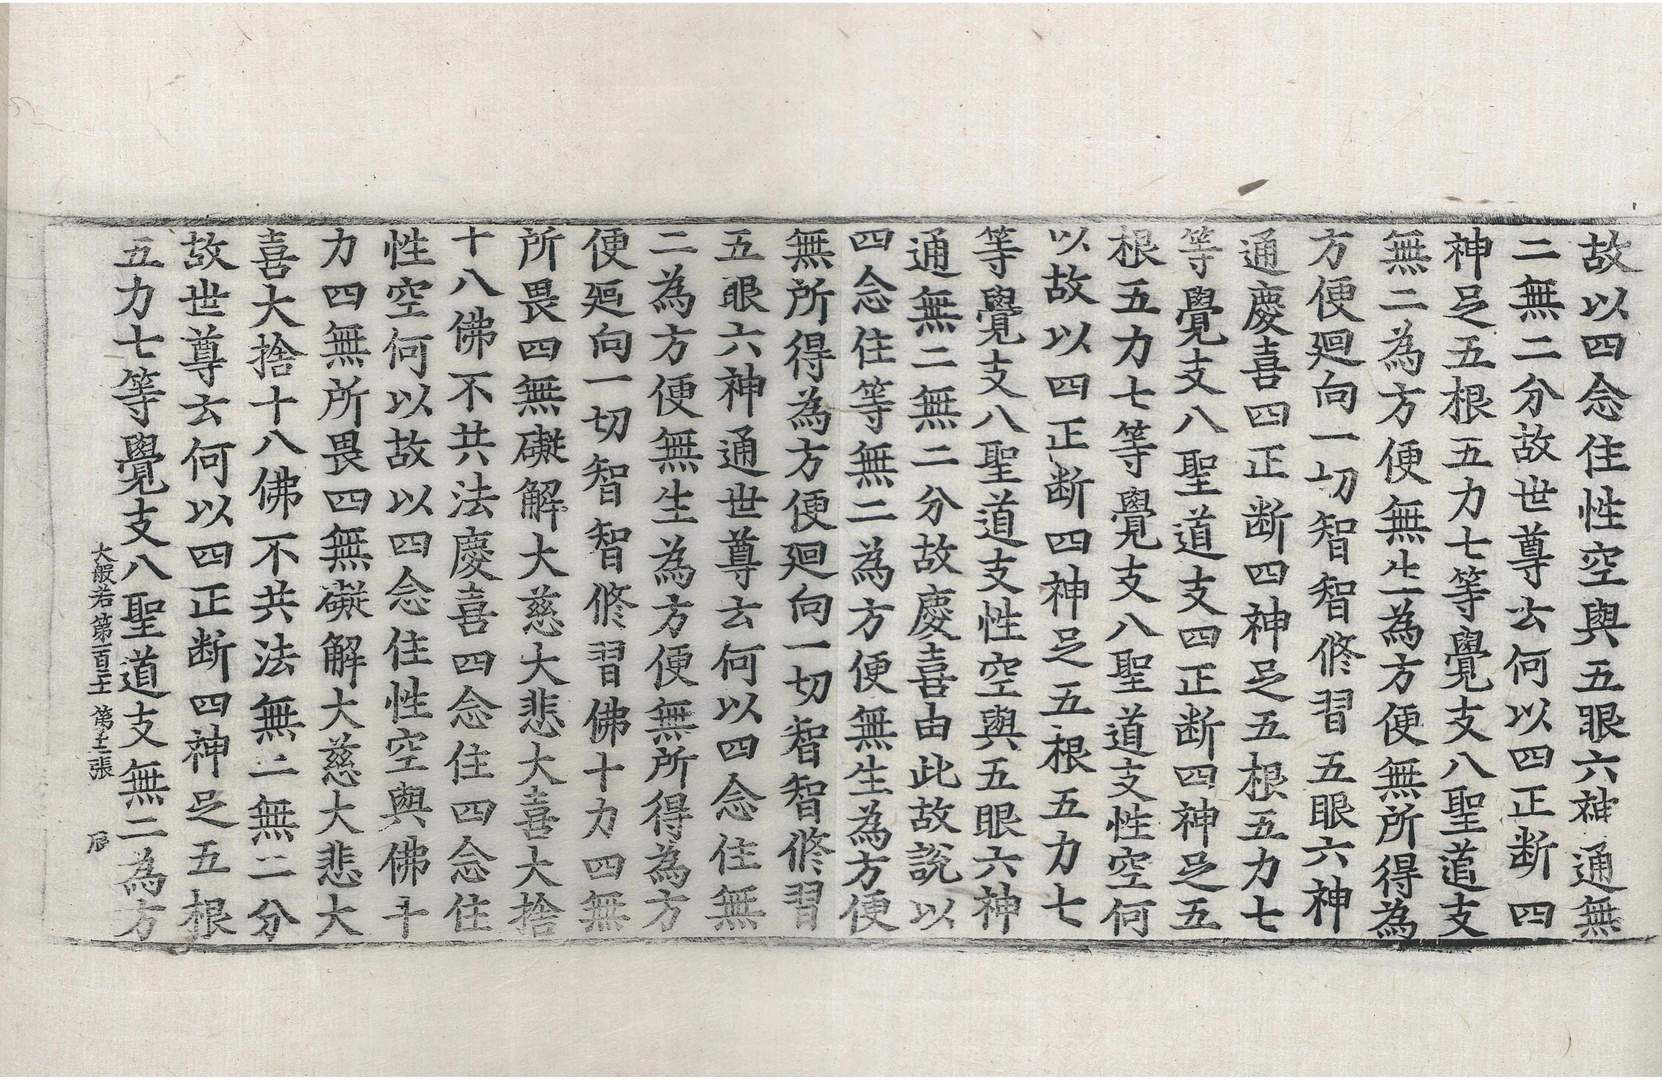 故以四念住性空與五眼六神通無
二無二分故世尊云何以四正断四
神足五根五力七等覺支八聖道支
無二為方便無生為方便無所得為
方便廻向一切智智修習五眼六神
通慶喜四正断四神足五根五力七
等覺支八聖道支四正断四神足五
根五力七等覺支八聖道支性空何
以故以四正断四神足五根五力七
等覺支八聖道支性空與五眼六神
通無二無二分故慶喜由此故說以
四念住等無二為方便無生為方便
無所得為方便廻向一切智智修習
五眼六神通世尊云何以四念住無
二為方便無生為方便無所得為方
便廻向一切智智修習佛十力四無
所畏四無礙解大慈大悲大喜大捨
十八佛不共法慶喜四念住四念住
性空何以故以四念住性空與佛十
力四無所畏四無礙解大慈大悲大
喜大捨十八佛不共法無二無二分
故世尊云何以四正断四神足五根
五力七等覺支八聖道支無二為方
大般若第 第 張 辰